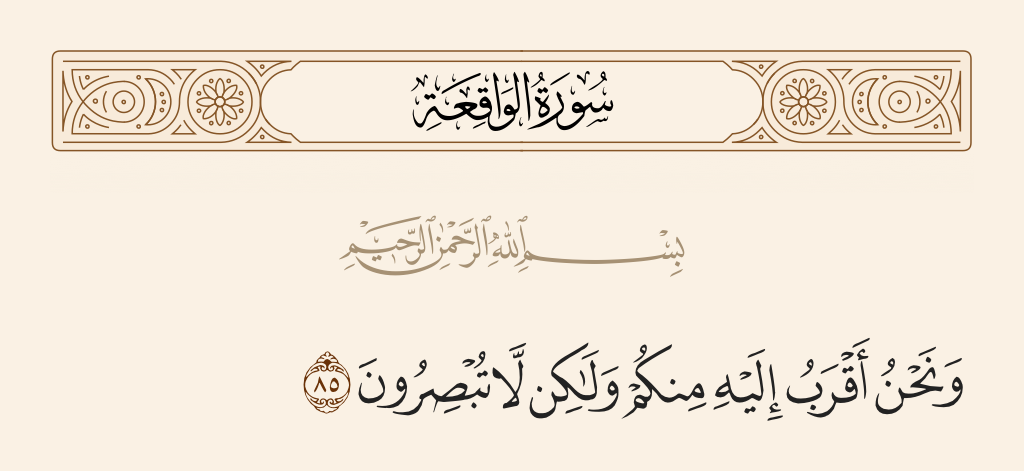 سُورَةُ الوَاقِعَةِ
بِسْمِ ٱللَّهِ ٱلرَّحْمَٰنِ ٱلرَّحِيمِ
وَنَحْنُ أَقْرَبُ إِلَيْهِ مِنكُمْ وَلَٰكِن لَّا تُبْصِرُونَ ٨٥